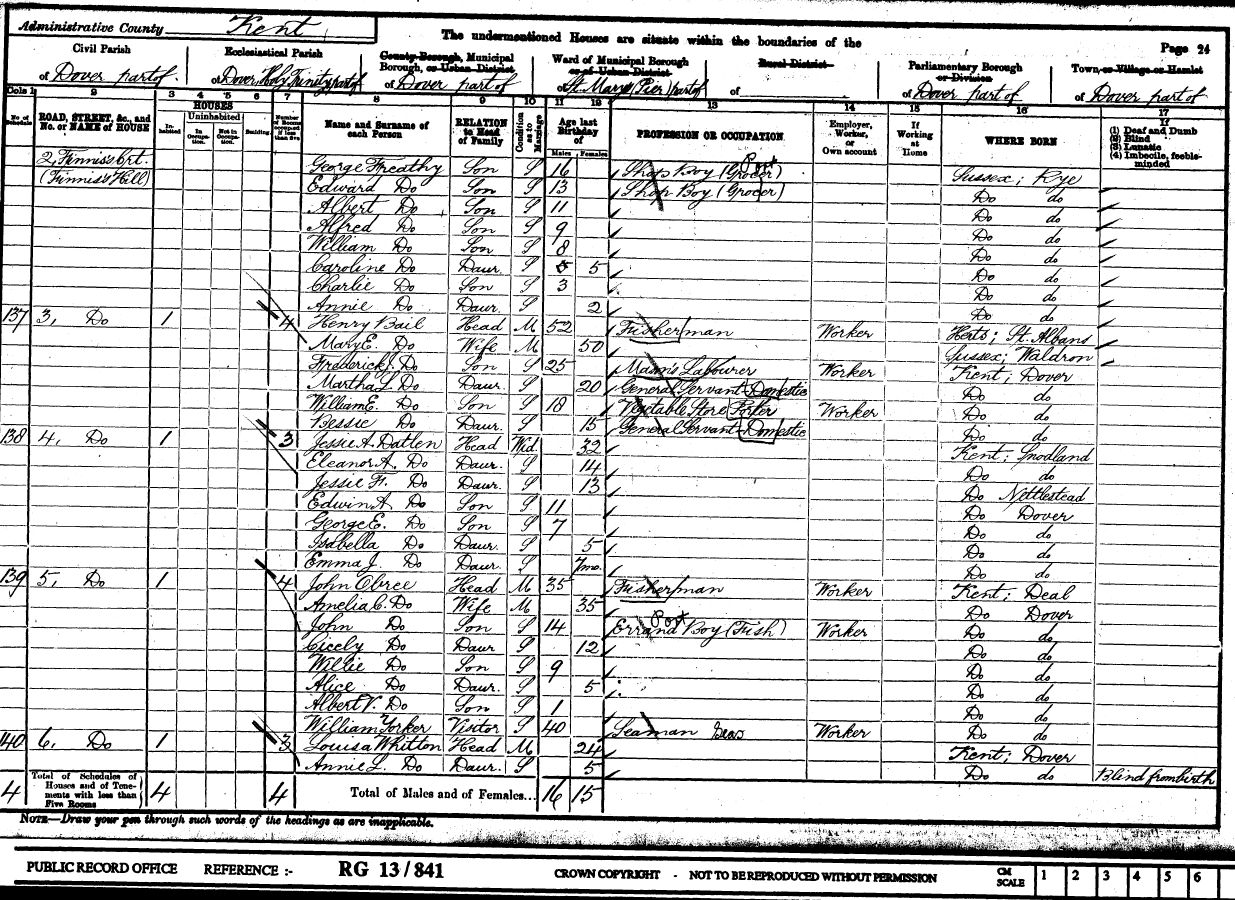 Administrative County Kent
The undermentioned Houses are situate within the boundaries of the
Page 24
Civil Parish of Dover part of
Ecclesiastical Parish of Dover, Holy Trinity part of
County Borough, Municipal Borough, or Urban District of Dover part of
Ward of Municipal Borough or of Urban District of St. Mary's (Pier) part of
Rural District of
Parliamentary Borough or Division of Dover part of
Town or Village or Hamlet of Dover part of
Cols 1 2 3 4 5 6 7 8 9 10 11 12 13 14 15 16 17
No. of Schedule
ROAD, STREET, &c., and No. or NAME of HOUSE
HOUSES
Inhabited
Uninhabited
In Occupation.
Not in Occupation.
Building
Number of Rooms occupied if less than five
Name and Surname of each Person
RELATION to Head of Family
Condition as to Marriage
Age last Birthday of
Males Females
PROFESSION OR OCCUPATION
Employer, Worker, or Own account
If Working at Home
WHERE BORN
If (1) Deaf and Dumb (2) Blind (3) Lunatic (4) Imbecile, feeble-minded
2, Finnis's Crt. (Finnis's Hill) George Freathy Son S 16 Shop Boy (Grocer) Port Sussex; Rye
Edward Do Son S 13 Shop Boy (Grocer) Do do
Albert Do Son S 11 Do do
Alfred Do Son S 9 Do do
William Do Son S 8 Do do
Caroline Do Daur. S 5 Do do
Charlie Do Son S 3 Do do
Annie Do Daur. S 2 Do do
137 3, Do 1 4 Henry Bail Head M 52 Fisherman Worker Herts; St. Albans
Mary E. Do Wife M 50 Sussex; Waldron
Frederick J. Do Son S 25 Mason's Labourer Worker Kent; Dover
Martha L. Do Daur. S 20 General Servant-Domestic Do do
William E. Do Son S 18 Vegetable Store Porter Worker Do do
Bessie Do Daur. S 15 General Servant-Domestic Do do
138 4, Do 1 3 Jessie A. Datlen Head Wid. 32 Kent; Snodland
Eleanor A. Do Daur. S 14 Do do
Jessie F. Do Daur. S 13 Do Nettlestead
Edwin A. Do Son S 11 Do Dover
George E. Do Son S 7 Do do
Isabella Do Daur. S 5 Do do
Emma J. Do Daur. S 7mo. Do do
139 5, Do 1 4 John Obree Head M 35 Fisherman Worker Kent; Deal
Amelia C. Do Wife M 35 Do Dover
John Do Son S 14 Errand Boy (Fish) Port Worker Do do
Cicely Do Daur S 12 Do do
Willie Do Son S 9 Do do
Alice Do Daur. S 5 Do do
Albert V. Do Son S 1 Do do
William Yorker Visitor S 40 Seaman Seas Worker Do do
140 6, Do 1 3 Louisa Whitton Head M 24 Kent; Dover
Annie L. Do Daur. S 5 Do do Blind from birth
4 Total of Schedules of Houses and of Tenements with less than Five Rooms 4 4 Total of Males and of Females... 16 15
NOTE—Draw your pen through such words of the headings as are inapplicable.
PUBLIC RECORD OFFICE REFERENCE :- RG 13/841 CROWN COPYRIGHT - NOT TO BE REPRODUCED WITHOUT PERMISSION CM SCALE 1 2 3 4 5 6